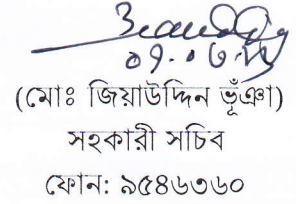 (মোঃ জিয়াউদ্দিন ভূঁঞা)
সহকারী সচিব
ফোন: ৯৫৪৬৩৬০